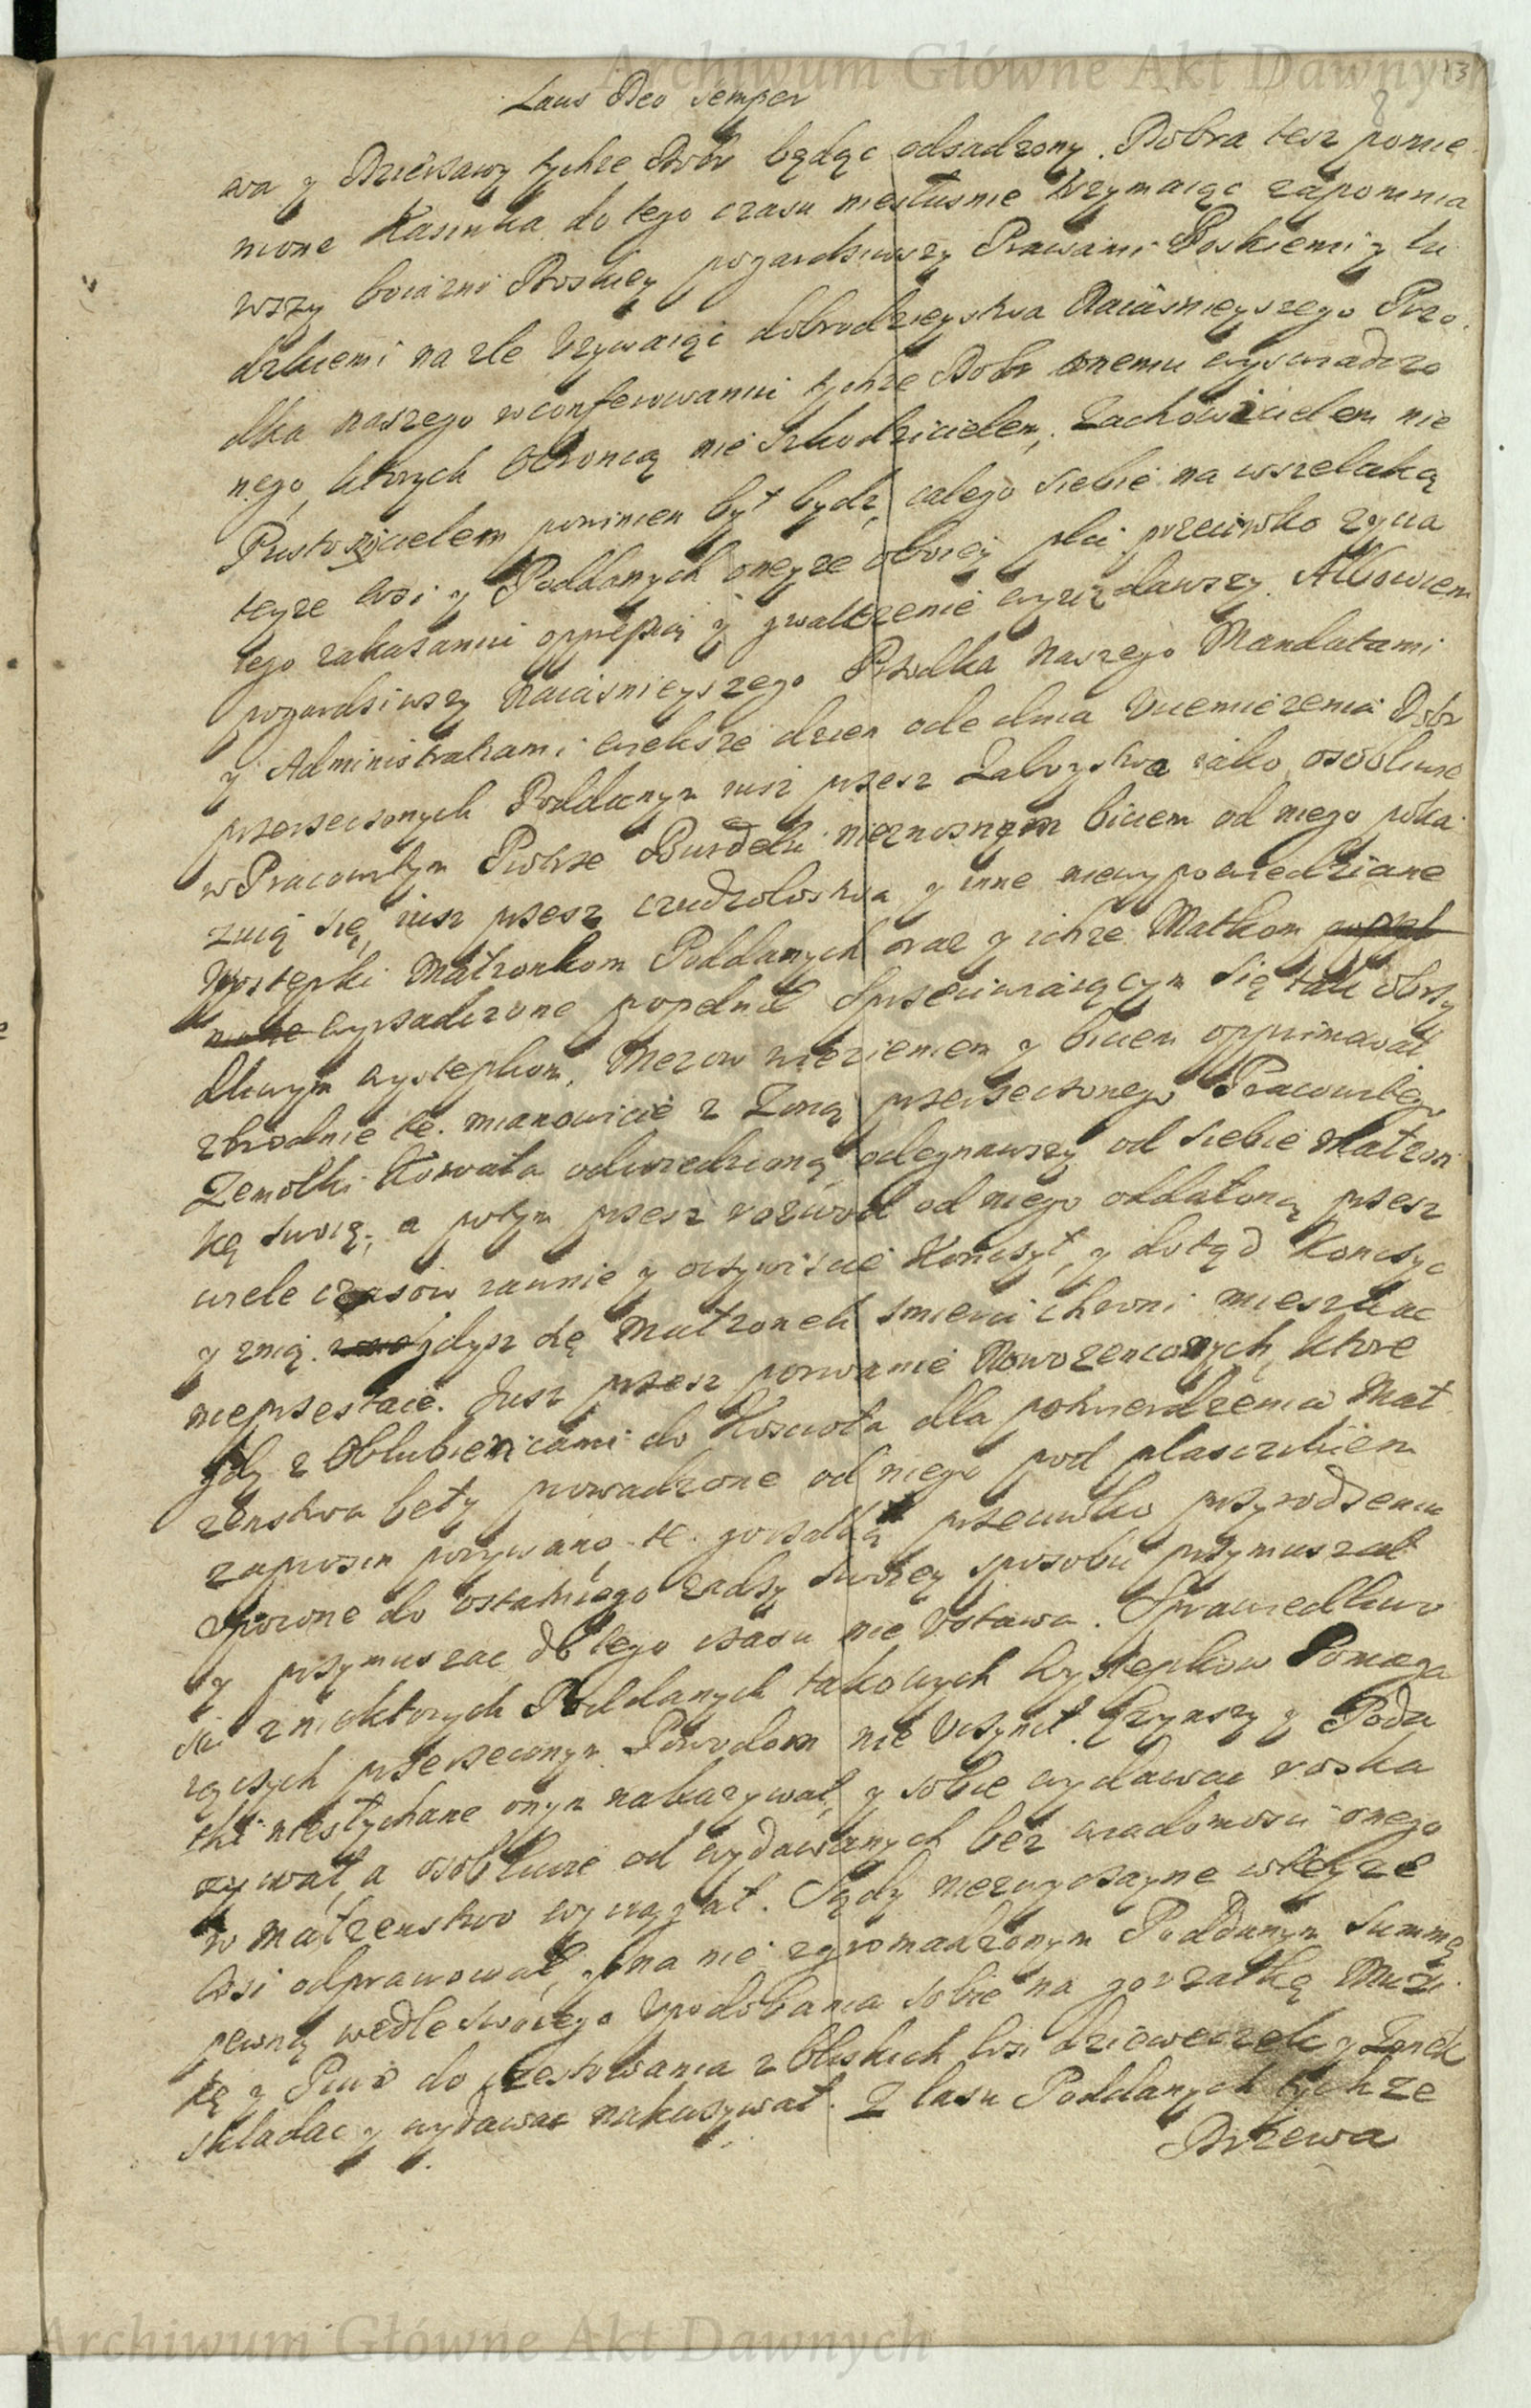 Archiwum Główne Akt Dawnych
13
8
Laus Deo semper
wa y Dzierżawy tychże Dobr będąc odsadzony. Dobra tesz pomie
nione Kasinka do tego czasu niesłusnie trzymaiąc zapomnia
wszy boiazni Boskiey pogardziwszy Prawami Boskiemi y lu
dzkiemi na zle Vzywaiąc dobrodzieystwa Naiásnieyszego Przo
dka naszego w conferowaniu tychze Dobr onemu wyswiadczo
nego, ktorych Obroncą nie szkodzicielem, Zachowicielem nie
Pustoszicielem powinien był bydz, całego siebie na wszelaką
teyze wsi y Poddanych oneyze oboiey płci przeciwko zycia
iego zakazaniu oppressią y gwałtzenie wyuzdawszy. Albowiem
pogardziwszy Naiásnieyszego Przodka Naszego Mandatami
y Administratami większe dzien ode dnia Vciemiezenia Dobr
przerzeczonych Poddanym iusz przesz Zaboystwa iako osobliwie
w Pracowitym Piotrze Burdelu nieznosnym biciem od niego poka
zuią się, iusz przesz cudzołostwa y inne niewypowiedziane
Występki Małzonkom Poddanych oraz y ichze Matkom
wyrzadzone popełnił Sprzeciwiaiącym się tak obrzy
dliwym występkom, Mezow więzieniem y biciem opprimował
zbrodnie te. mianowicie z Zoną przerzeczonego Pracowitego
Zemołki Kowala odwiedzioną odegnawszy od siebie Małzon
kę swoią, a potym przesz rozwod od niego oddaloną przesz
wiele czasow iawnie y oczywiscie Konczył, y dotąd Konczyc
y znią gdysz tę Małzonek smierci chroni mieszkac
nieprzestaie. Jusz przesz porwanie Nowozenconych, ktore
gdy z Oblubienicami do Koscioła dla potwierdzenia Mał
zenstwa beły prowadzone od niego pod płaszczikiem
zaprosin porywano te. gorzałką przeciwko przyrodzeniu
Spoione do ostatniego zadzy swoiey sposobu przymuszał
y przymuszac do tego czasu nie Vstawa. Sprawiedliwo
sci z niektorych Poddanych takowych Występkow Pomaga
iących przerzeconym Powodom nie Vczynił. Czynszy y Poda
tki niesłychane onym nakazywał, y sobie wydawac roska
zywał, a osobliwie od wydawanych bez wiadomosci onego
w małzenstwo wyciągał. Sądy niezwyczayne wteyże
Wsi odprawował, y na nie zgromadzonym Poddanym Summę
pewną wedle swoiego Vpodobania sobie na gorzałkę Muzi
kę y Piwo do czestowania z bliskich wsi dzieweczek y Zonek
składac y wydawac nakazywał. Z lasu Poddanych tychże
Drzewa
Archiwum Główne Akt Dawnych